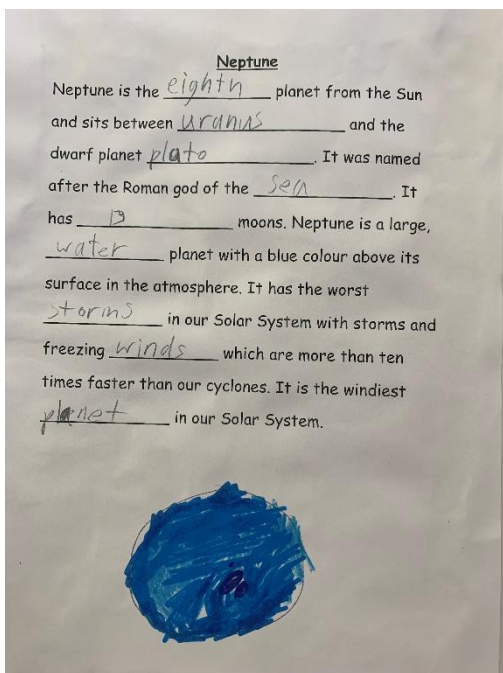 Neptune
Neptune is the eighth planet from the Sun
and sits between uranus and the
dwarf planet plato. It was named
after the Roman god of the sea. It
has 13 moons. Neptune is a large,
water planet with a blue colour above its
surface in the atmosphere. It has the worst
storms in our Solar System with storms and
freezing winds which are more than ten
times faster than our cyclones. It is the windiest
planet in our Solar System.